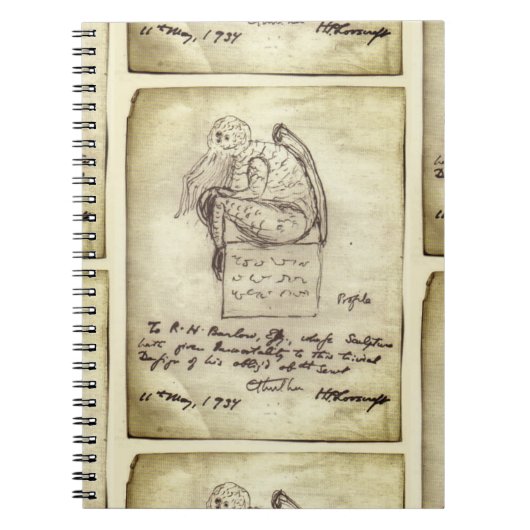 11th May, 1934 H.P. Lovecraft
Profile
To R. H. Barlow, Esq., whose Sculpture
hath given Immortality to this trivial
Design of his oblig'd obt Servt
Cthulhu
11th May, 1934 H.P. Lovecraft
11th May